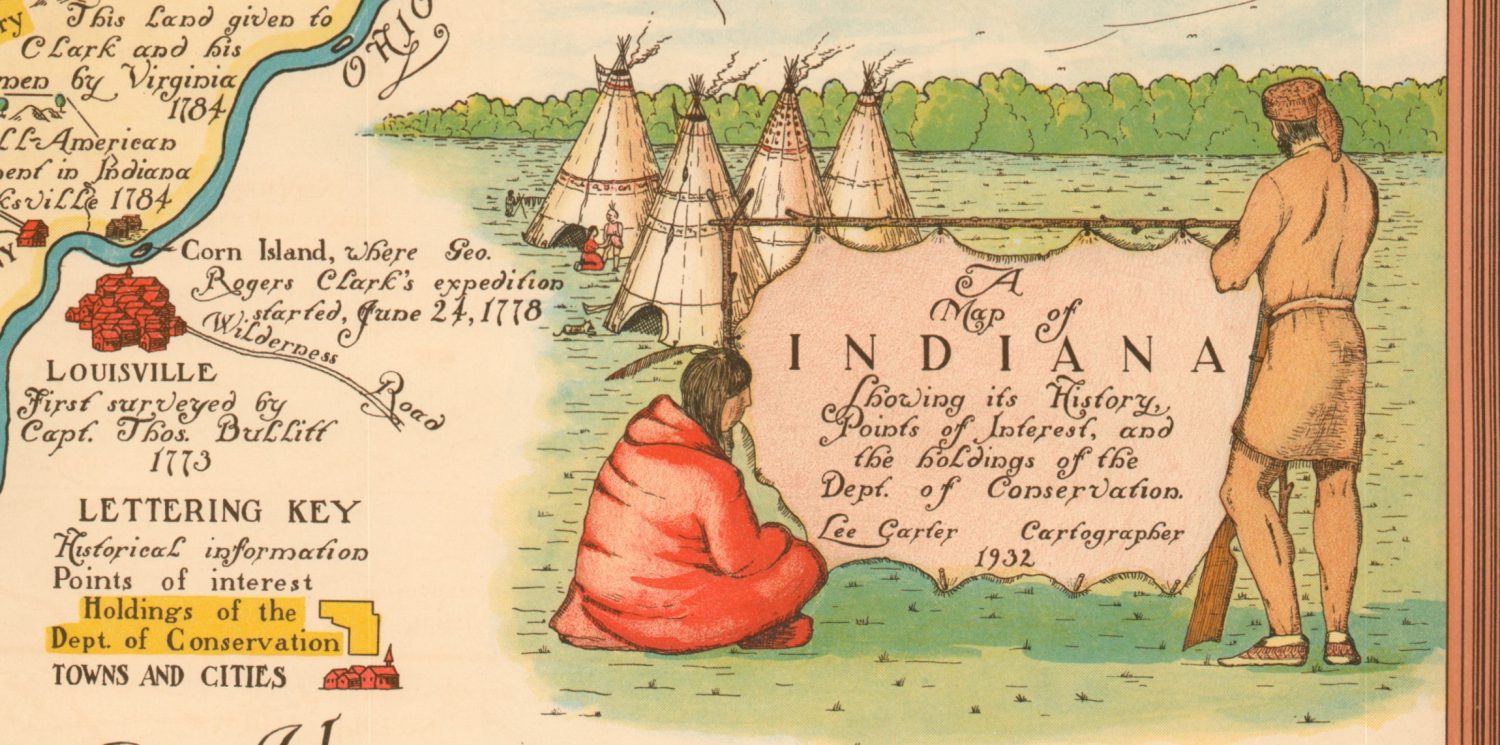 This Land given to
Clark and his
men by Virginia
1784
OHIO
American
in Indiana
1784
Corn Island, where Geo.
Rogers Clark's expedition
started, June 24, 1778
Wilderness Road
LOUISVILLE
First surveyed by
Capt. Thos. Bullitt
1773
LETTERING KEY
Historical information
Points of interest
Holdings of the
Dept. of Conservation
TOWNS AND CITIES
A
Map of
INDIANA
Showing its History,
Points of Interest, and
the holdings of the
Dept. of Conservation.
Lee Carter Cartographer
1932